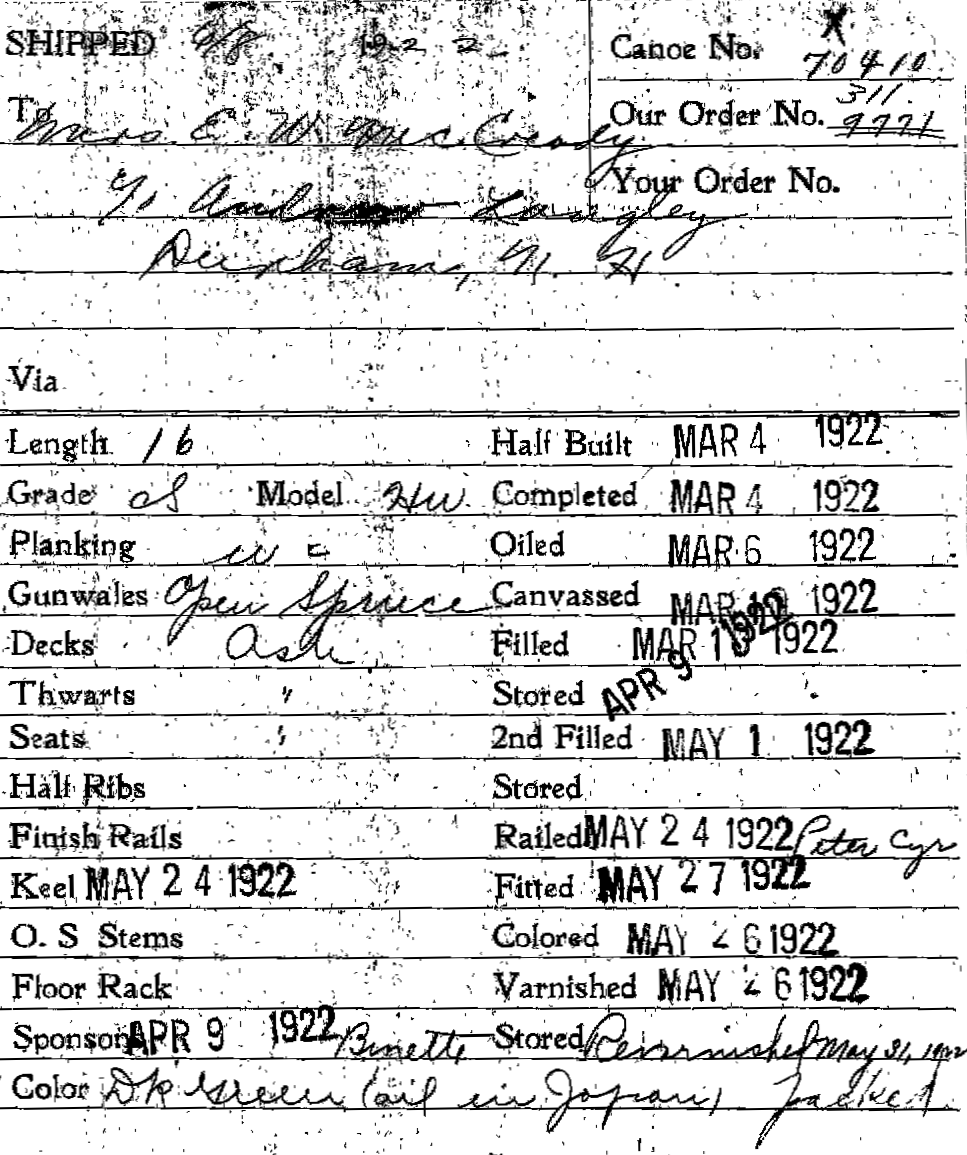 SHIPPED 6/8 1922 Canoe No. X 70410
To Our Order No. 311 9771
Mrs E. W. McCready
Your Order No.
% Andrew Langley
Durham, N. H
Via
Length 16 Half Built MAR 4 1922
Grade CS Model HW Completed MAR 4 1922
Planking W C Oiled MAR 6 1922
Gunwales Open Spruce Canvassed MAR 1922
Decks Ash Filled MAR 1922
Thwarts " Stored APR 9 1922
Seats " 2nd Filled MAY 1 1922
Half Ribs Stored
Finish Rails Railed MAY 24 1922 Peter Cyr
Keel MAY 24 1922 Fitted MAY 27 1922
O. S Stems Colored MAY 26 1922
Floor Rack Varnished MAY 26 1922
Sponsons APR 9 1922 Binette Stored Revarnished May 31, 1922
Color Dk Green (oil in Japan)